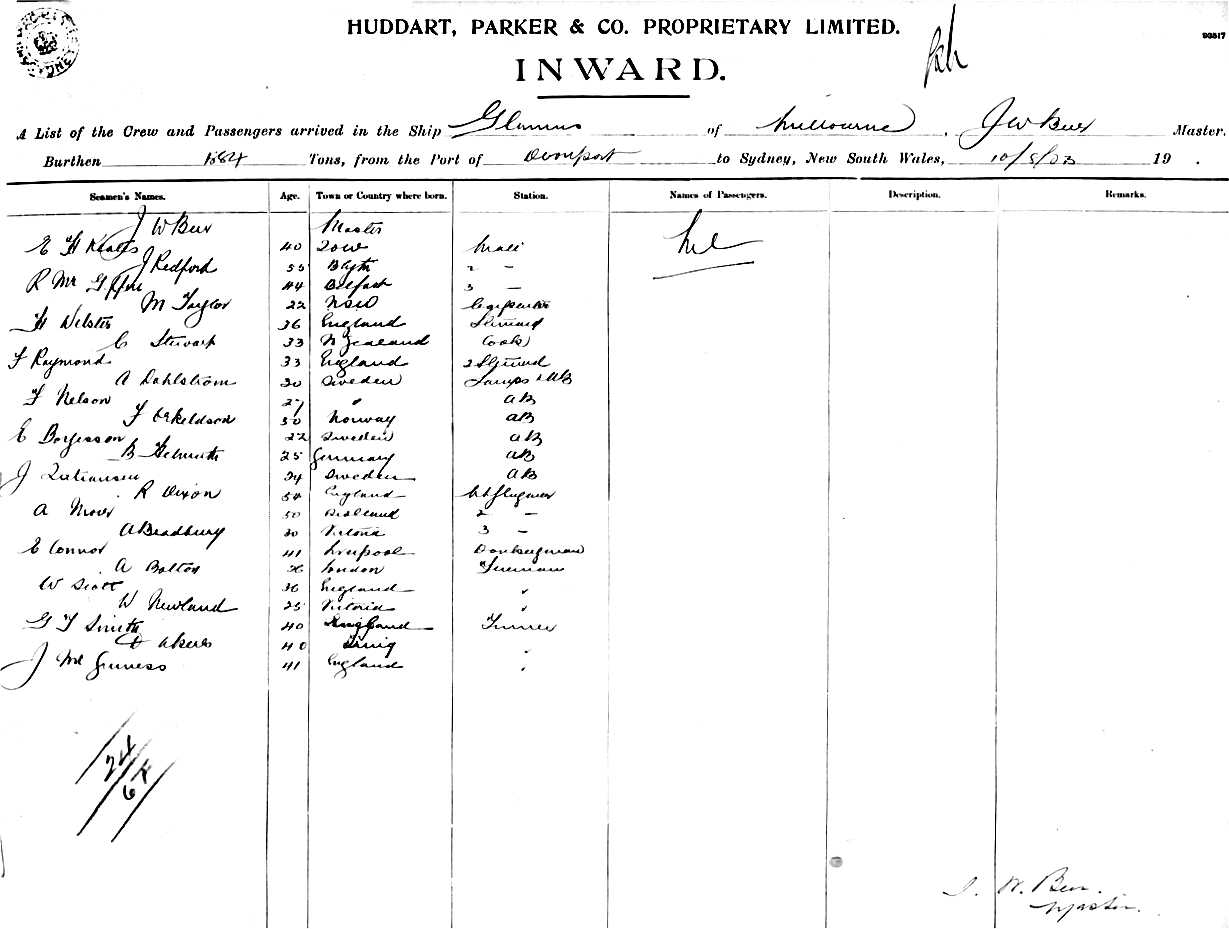 HUDDART, PARKER & CO. PROPRIETARY LIMITED.
93517
INWARD.
A List of the Crew and Passengers arrived in the Ship of Melbourne. J W Beer Master.
Burthen Tons, from the Port of Devonport to Sydney, New South Wales, 10/5/ 19 .
Seamen's Names. Age. Town or Country where born. Station. Names of Passengers. Description. Remarks.
J W Beer Master
E H Keates 40 Mate
J Redford 55 Blyth 2 —
R Mc 44 Belfast 3 —
M Taylor 22 NSW Carpenter
H Welster 36 England Steward
C Stewart 33 N Zealand Cook
F Raymond 33 England 2 Steward
A Dahlstrom 20 Sweden Lamps & AB
F Nelson 27 " AB
F 50 Norway AB
E Borjesson 22 Sweden AB
B Helmuth 25 Germany AB
J 24 Sweden AB
R Dixon 54 England
A 50 2 —
A Bradbury 30 Victoria 3 —
E Connor 41 Liverpool Donkeyman
A Bolton London Fireman
W Scott 36 England "
W Newland 25 Victoria "
G F Smith 40 England Trimmer
D Akers 40 "
J McGuiness 41 England "
24
J. W. Beer.
Master.